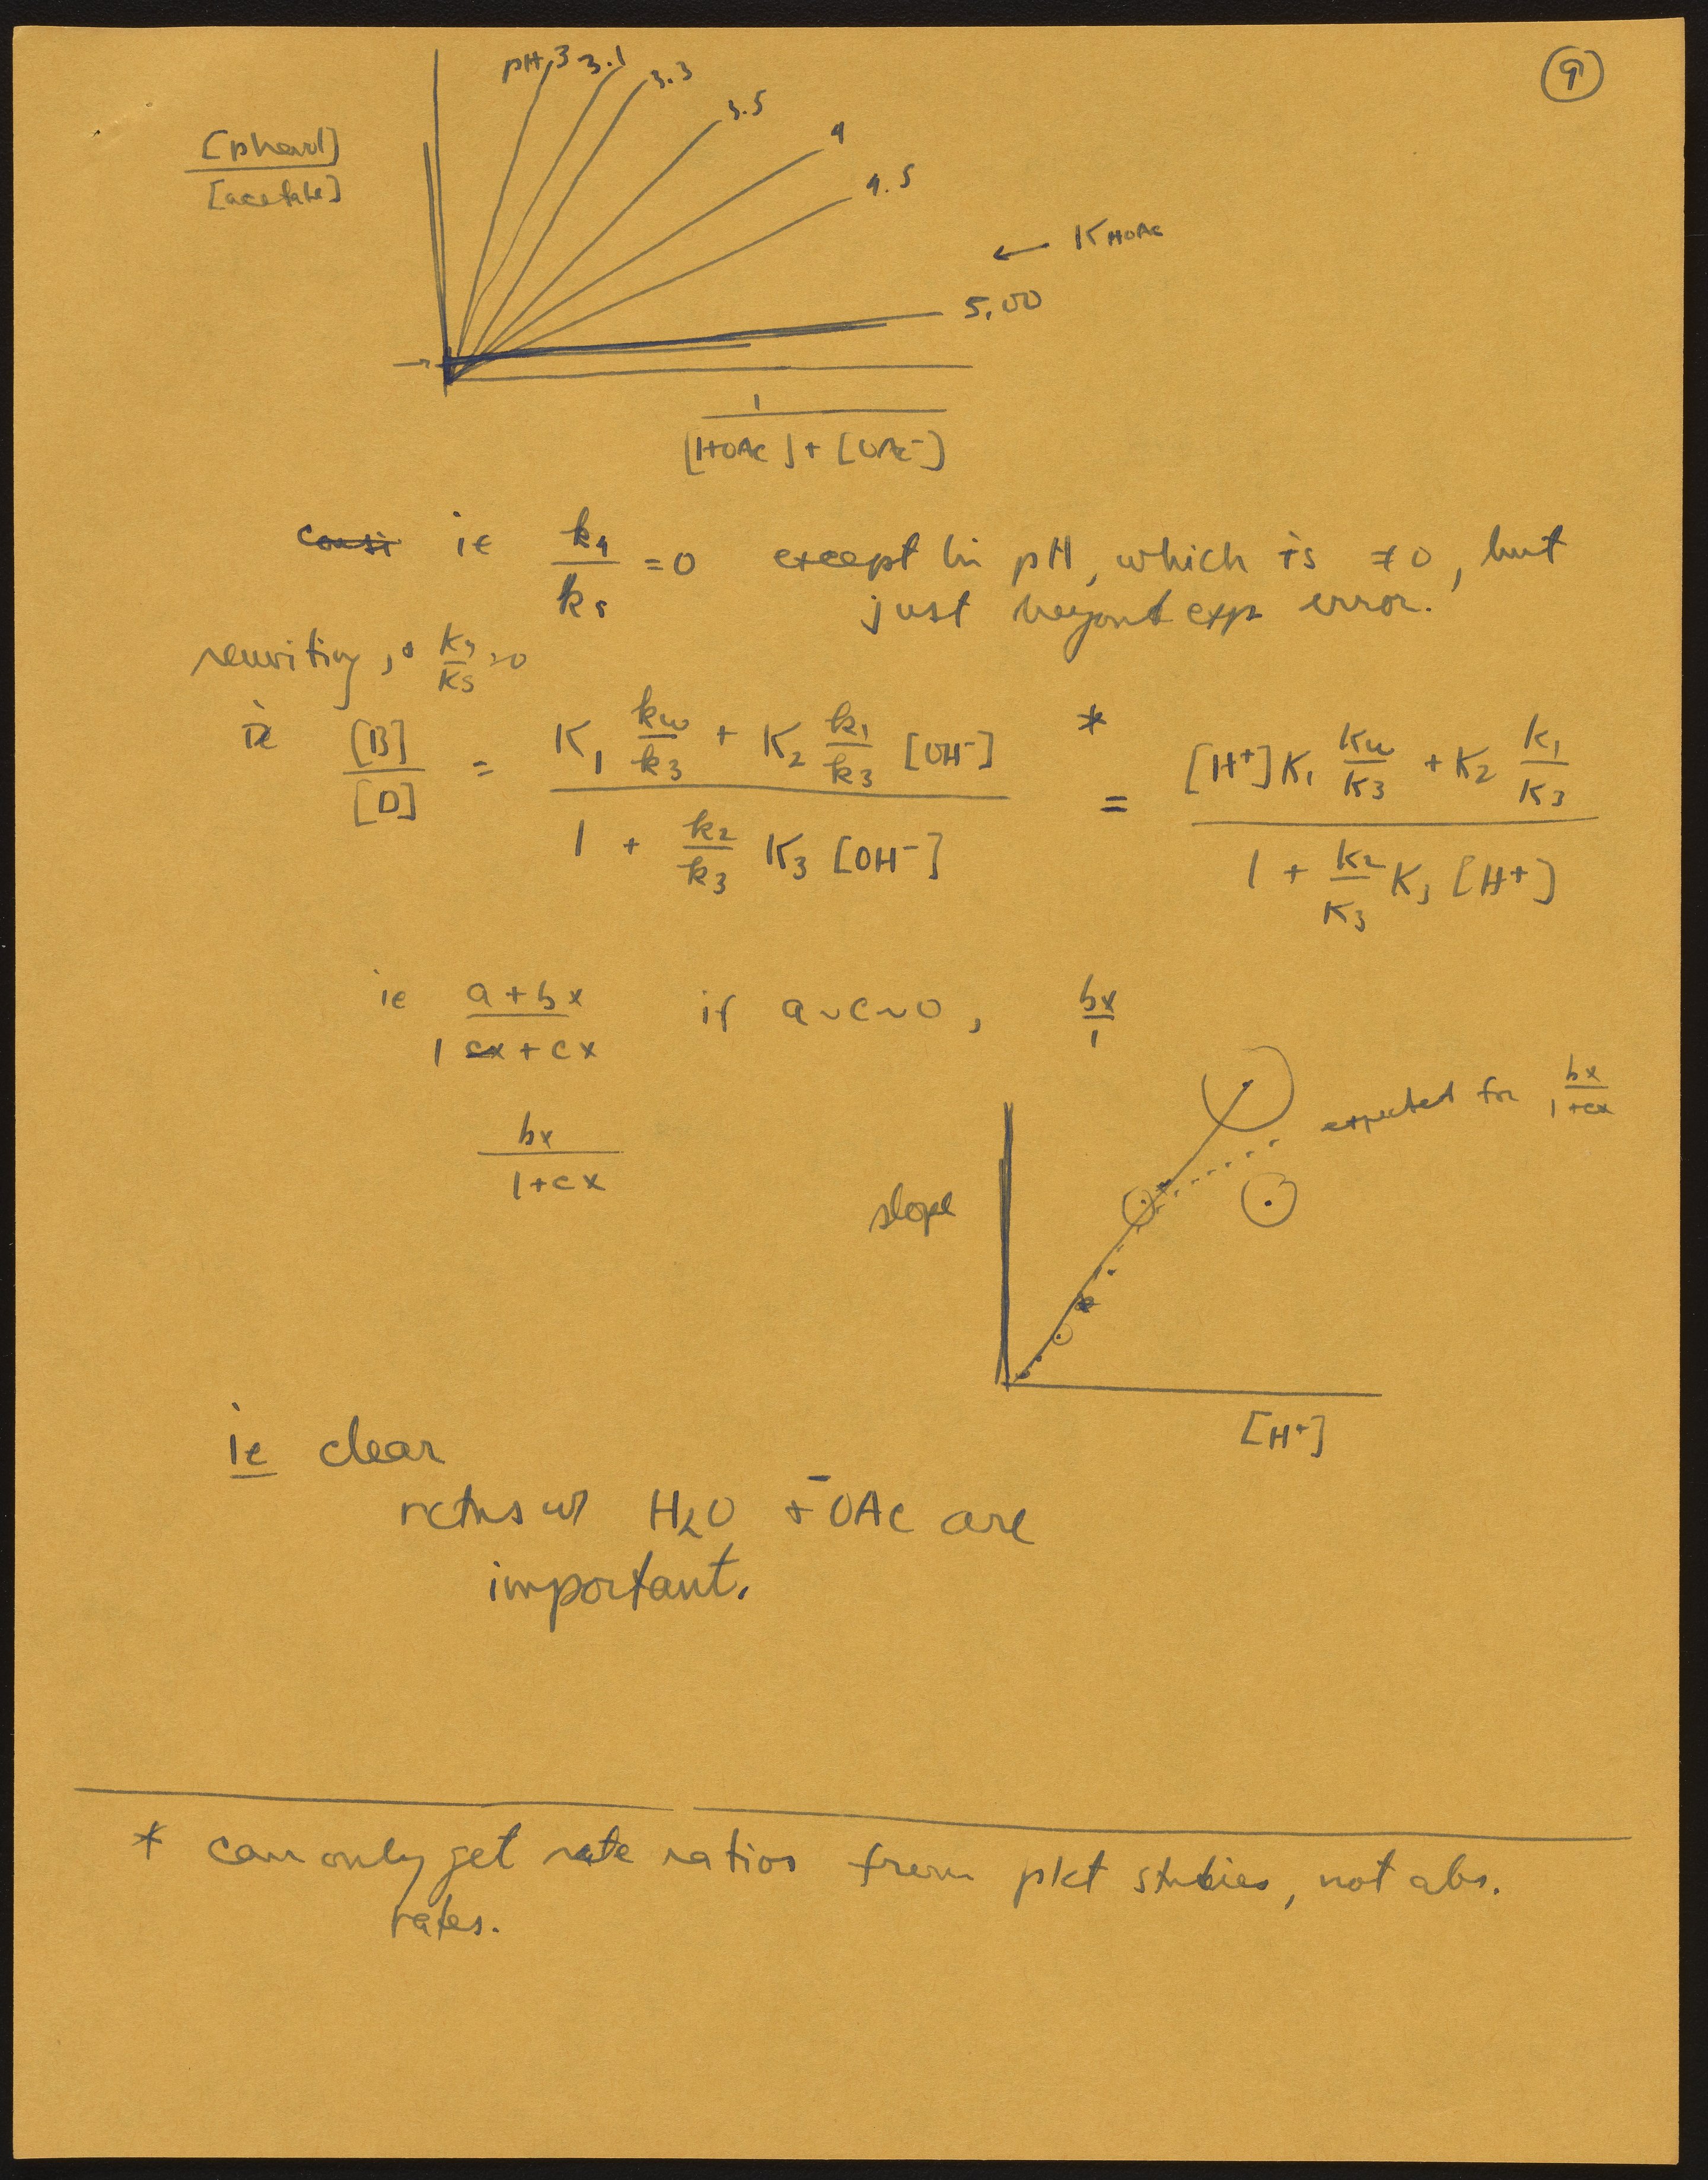 9
pH 3 3.1 3.3
3.5
4
4.5
[phenol]
[acetate]
← K HOAc
5.00
1
[HOAc] + [OAc⁻]
consi ie k₄/k₅ = 0 except hi pH, which is ≠ 0, but
just beyond exp error.
rewriting, k₄/k₅ ~ 0
ie [B]/[D] = (K₁ kw/k₃ + K₂ k₁/k₃ [OH⁻]) / (1 + k₂/k₃ K₃ [OH⁻]) * = ([H⁺]K₁ kw/k₃ + K₂ k₁/k₃) / (1 + k₂/k₃ K₃ [H⁺])
ie a + bx / 1 cx + cx if a ~ c ~ 0, bx/1
bx
1+cx
expected for bx/1+cx
slope
[H⁺]
ie clear
rctns w/ H₂O + ⁻OAc are
important.
* can only get rate ratios from pkt studies, not abs.
rates.